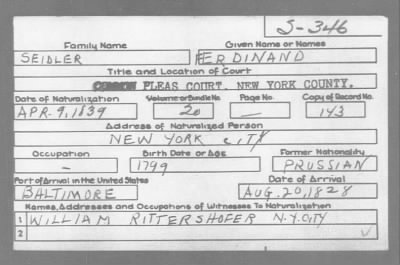 S-346
Family Name Given Name or Names
SEIDLER FERDINAND
Title and Location of Court
COMMON PLEAS COURT, NEW YORK COUNTY.
Date of Naturalization Volume or Bundle No. Page No. Copy of Record No.
APR. 9, 1839 20 — 143
Address of Naturalized Person
NEW YORK CITY
Occupation Birth Date or Age Former Nationality
– 1799 PRUSSIAN
Port of Arrival in the United States Date of Arrival
BALTIMORE AUG. 20, 1828
Names, Addresses and Occupations of Witnesses To Naturalization
1 WILLIAM RITTERSHOFER N.Y. CITY
2